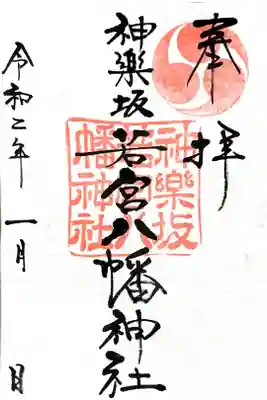 奉拝
神楽坂若宮八幡神社
神樂坂
若宮八
幡神社
令和二年 一月 日